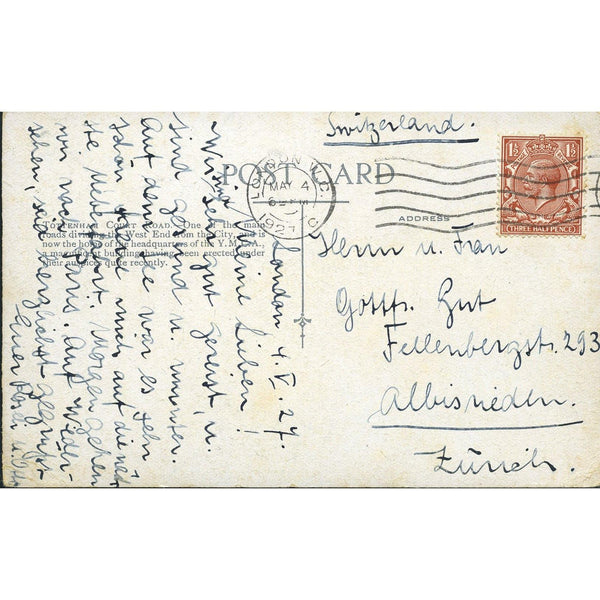 Switzerland.
POST CARD
LONDON W.C.
MAY 4
1927
1½ 1½
THREE HALFPENCE
ADDRESS
Herrn u. Frau
Gottfr. Gut
Fellenbergstr. 293
Albisrieden.
Zürich.
TOTTENHAM COURT ROAD. One of the main
roads dividing the West End from the City, and is
now the home of the headquarters of the Y.M.C.A.,
a magnificent building having been erected under
their auspices quite recently.
London 4. V. 27.
Meine Lieben!
Wir sind sehr gut gereist, u.
sind gesund u. munter.
Auf dem See war es sehr
schön mich auf die näch
ste Ueberfahrt. Morgen gehen
wir nach Paris. Auf Wieder-
sehen, seid herzlichst gegrüsst
Euer